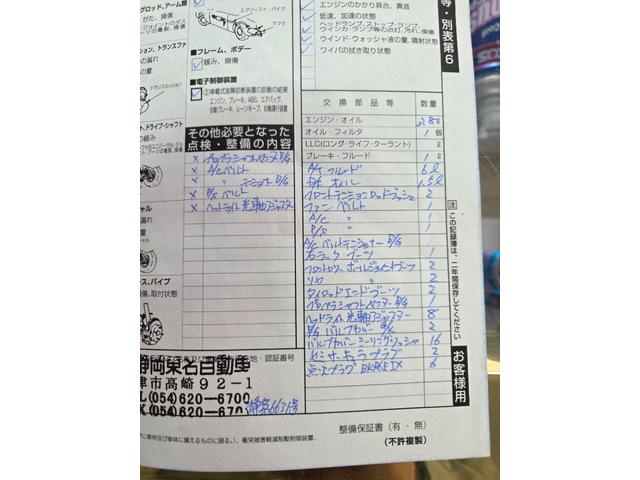 グロッド、アーム類
がた、損傷
エグゾースト・パイプ
マフラ
■フレーム、ボデー
緩み、損傷
■電子制御装置
エンジン、ブレーキ、ABS、エアバッグ、
自動ブレーキ、レーンキープ、自動運行装置
トランスミッション
ト、ドライブ・シャフト
その他必要となった
点検・整備の内容
× A/Cベルト
× P/Sベルト
× ヘッドライト光軸アジャスター
エンジンのかかり具合、異音
低速、加速の状態
ヘッドランプ、ストップ・ランプ、
ウインカ・ランプ等の点灯、汚れ、損傷
ウインド・ウォッシャ液の量、噴射状態
ワイパの拭き取り状態
等・別表第6
交換部品等 数量
エンジン・オイル
オイル・フィルタ 1 個
LLC(ロング・ライフ・クーラント) ℓ
ブレーキ・フルード 1 ℓ
A/T フルード 6ℓ
オイル 1.5ℓ
フロントテンションロッドブッシュ 2
ファンベルト 1
A/C 〃 1
P/S 〃 1
A/C ベルトテンショナー B/G
右ラックブーツ 1
フロントロアボールジョイントブーツ 2
リヤ 〃 2
タイロッドエンドブーツ 2
プロペラシャフトセンター B/G 1
ヘッドライト光軸アジャスター 8
バルブカバー 2
バルブカバーシーリングワッシャ 16
セミサーキュラプラグ 2
点火プラグ 6
注 この記録簿は、二年間保存してください
お客様用
ス、パイプ
傷、取付状態
地・認証番号
静岡東名自動車
津市高崎92-1
L (054)620-6700
整備保証書(有・無)
(不許複製)
に車枠及び車体に備えるものに限る。)、衝突被害軽減制動制御装置。